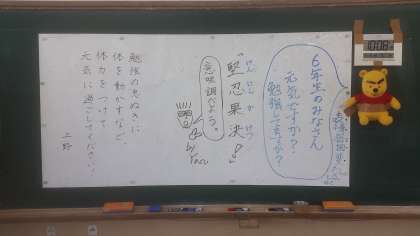 6年生のみなさん
元気ですか?
勉強してますか?
けん にん か けつ
"堅忍果決"!
意味調べよう。
by Yano
勉強の息ぬきに
体を動かすなど
体力をつけて
元気に過ごしてください!
上野
10:08